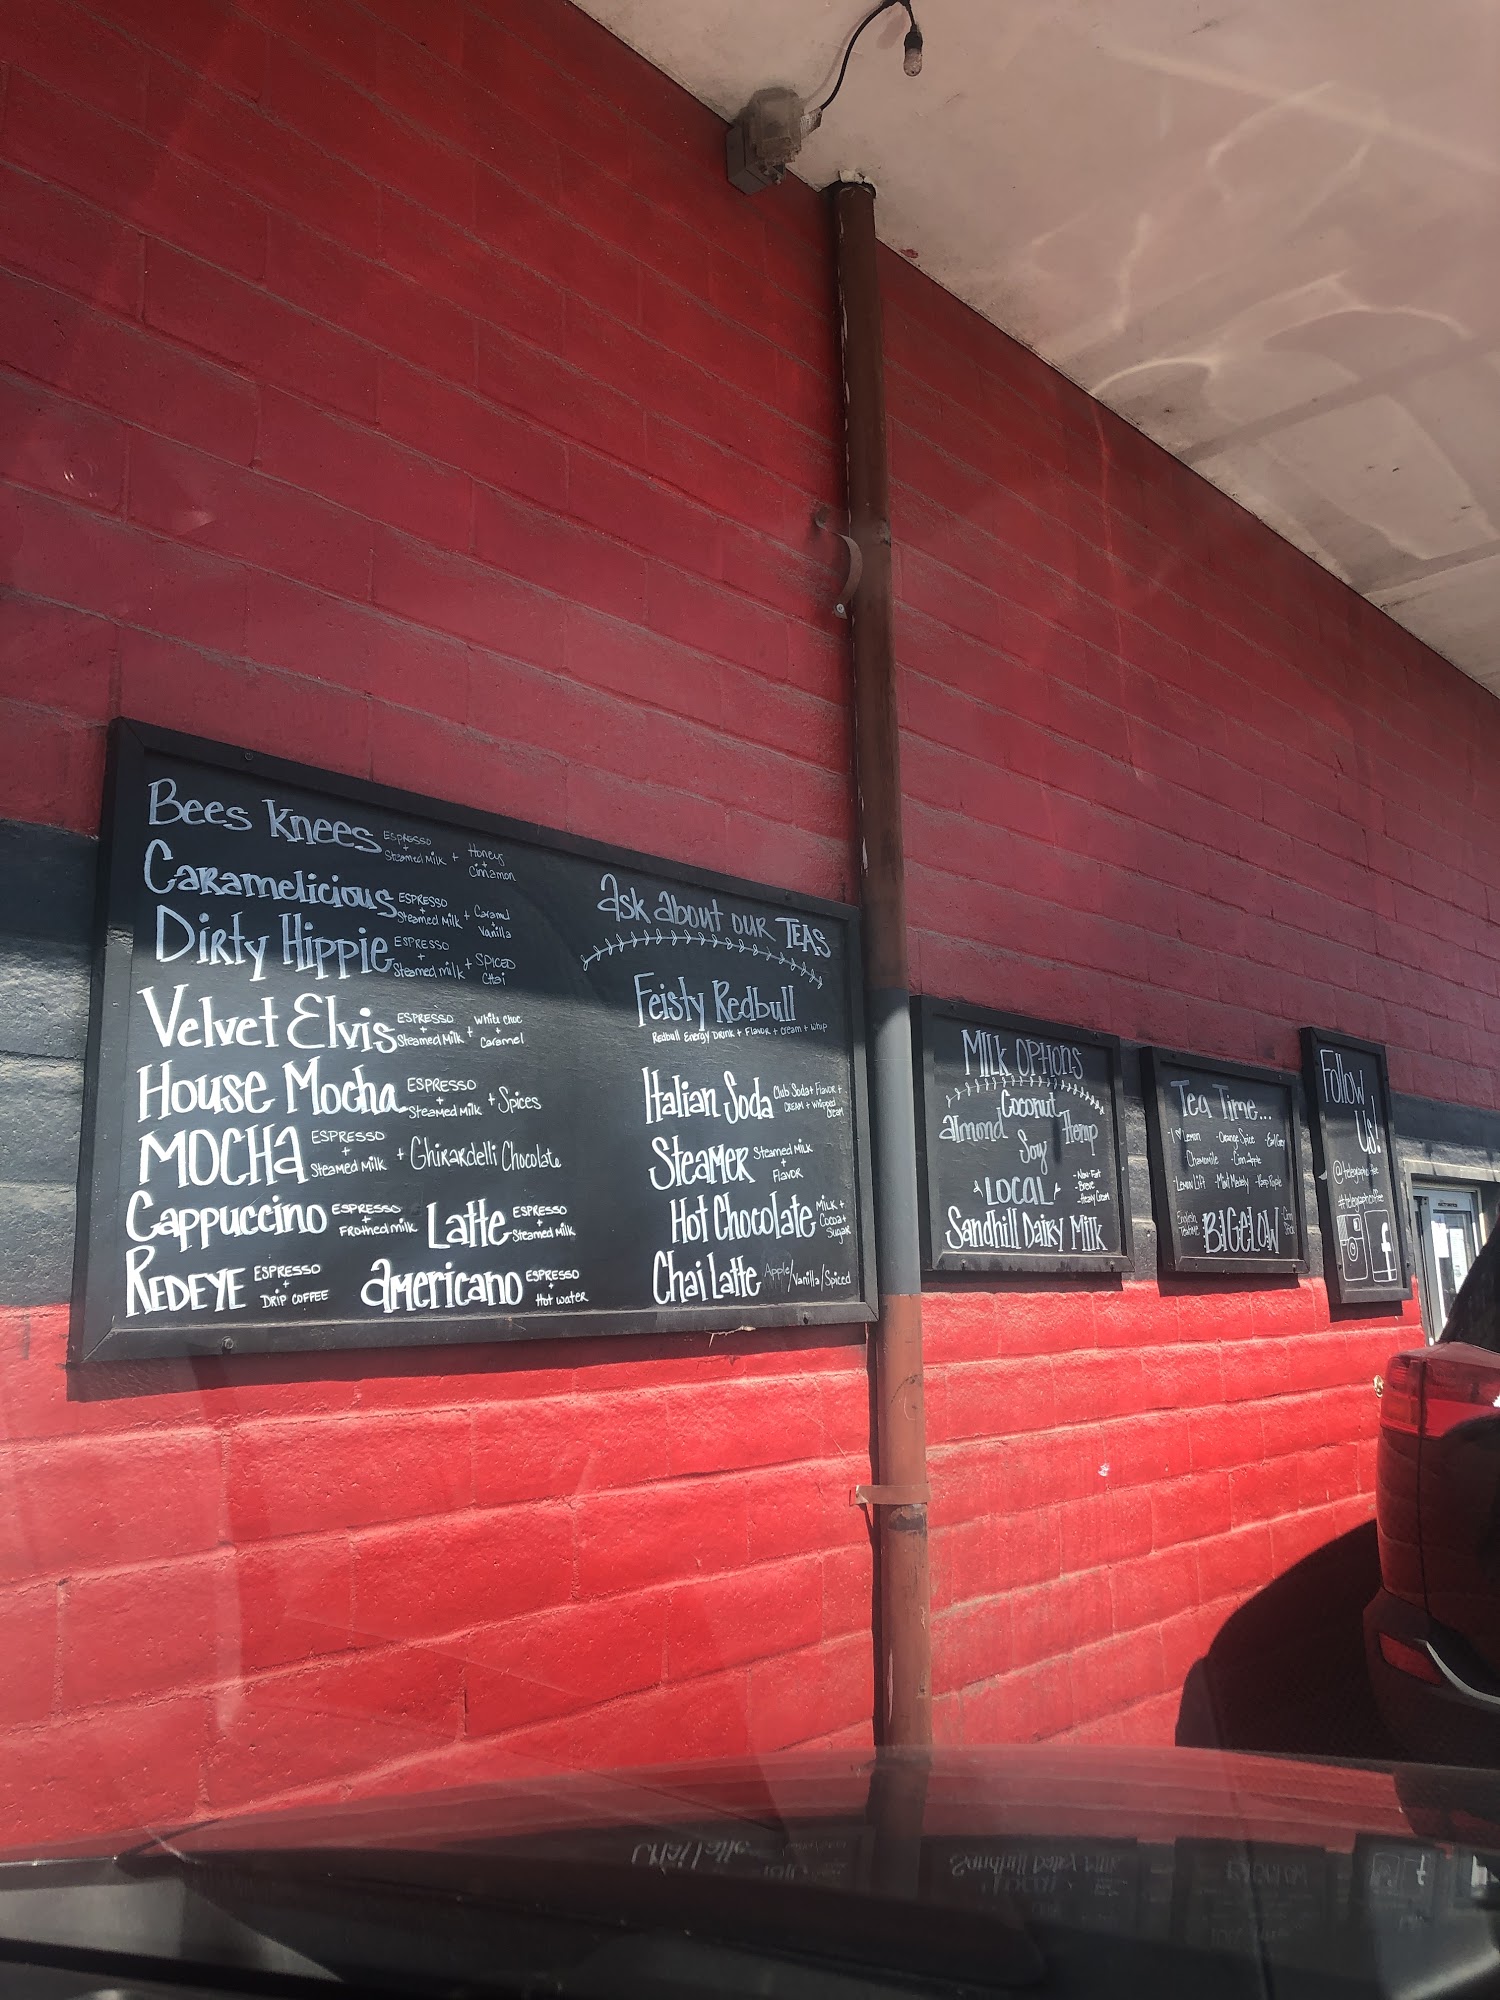 Bees Knees ESPRESSO + Steamed Milk + Honey + Cinnamon
Caramelicious ESPRESSO + Steamed Milk + Caramel Vanilla
Dirty Hippie ESPRESSO + Steamed milk + SPICED Chai
Velvet Elvis ESPRESSO + Steamed Milk + White Choc + Caramel
House Mocha ESPRESSO + Steamed Milk + Spices
MOCHA ESPRESSO + Steamed Milk + Ghirardelli Chocolate
Cappuccino ESPRESSO + Frothed milk Latte ESPRESSO + Steamed Milk
REDEYE ESPRESSO + DRIP COFFEE Americano ESPRESSO + Hot Water
ask about our TEAS
Feisty Redbull
Redbull Energy Drink + Flavor + Cream + Whip
Italian Soda Club Soda + Flavor + CREAM + Whipped Cream
STEAMER Steamed Milk + FLAVOR
Hot Chocolate MILK + Cocoa + Sugar
Chai Latte Apple/Vanilla/Spiced
Milk OPtions
Coconut
almond Hemp
Soy
LOCAL
- Non-Fat
- Breve
- Heavy Cream
Sandhill Dairy Milk
Tea Time...
- I ♥ Lemon - Orange Spice - Earl Grey
Chamomile - Cinn Apple
- Lemon Lift - Mint Medely
English Teatime BIGELOW
Follow
Us!
#telegraphcoffee
f